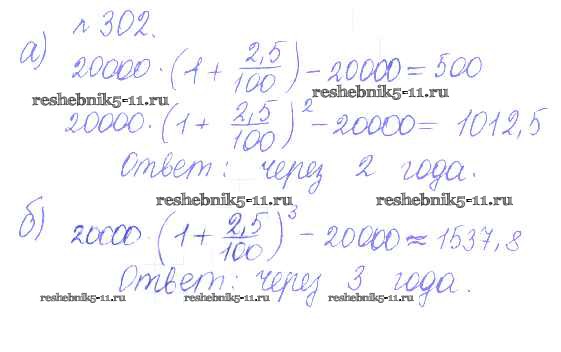 № 302.
а) 20000 · (1 + 2,5/100) − 20000 = 500
reshebnik5-11.ru reshebnik5-11.ru
20000 · (1 + 2,5/100)² − 20000 = 1012,5
Ответ: через 2 года.
reshebnik5-11.ru
б) 20000 · (1 + 2,5/100)³ − 20000 ≈ 1537,8
Ответ: через 3 года.
reshebnik5-11.ru reshebnik5-11.ru reshebnik5-11.ru